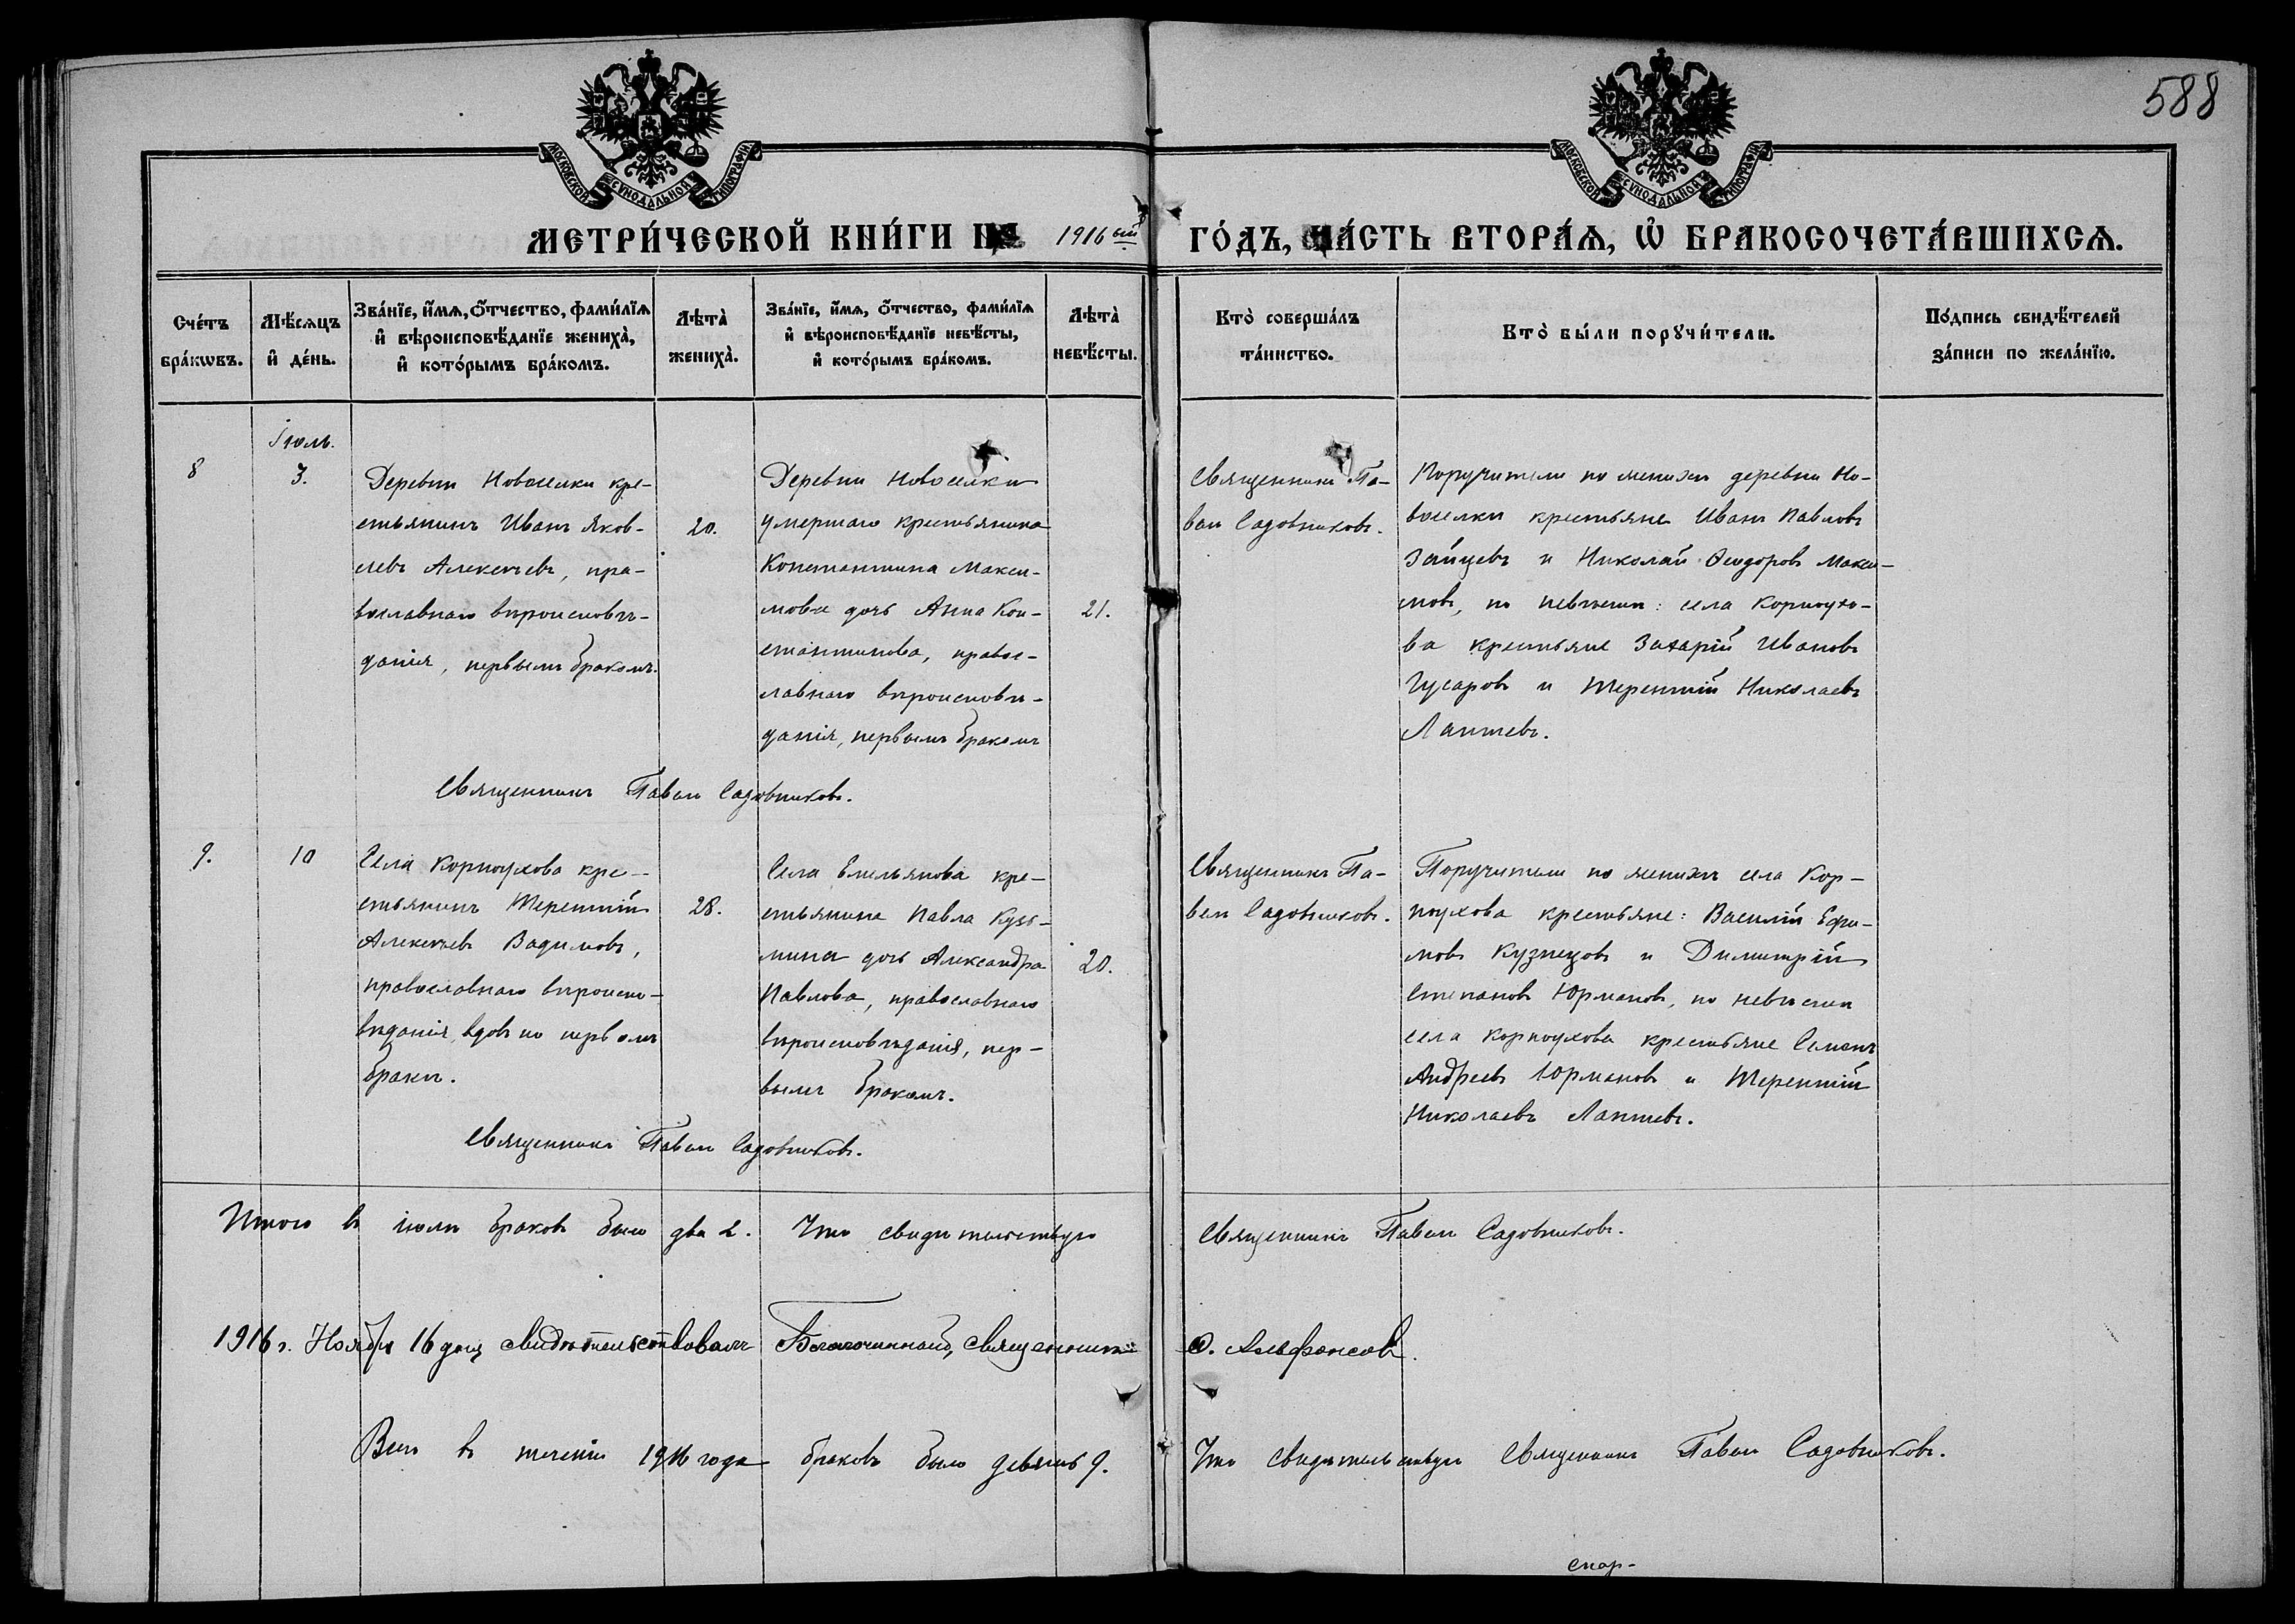 588
МОСКОВСКОЙ СѴНОДАЛЬНОЙ ТИПОГРАФІИ
МОСКОВСКОЙ СѴНОДАЛЬНОЙ ТИПОГРАФІИ
МЕТРИ́ЧЕСКОЙ КНИ́ГИ НА 1916ый ГО́ДЪ, ЧА́СТЬ ВТОРА́Ѧ, Ѽ БРАКОСОЧЕТА́ВШИХСѦ.
Сче́тъ
бра́кѡвъ.
Мѣ́сѧцъ
и҆ де́нь.
Зва́нїе, и҆́мѧ, ѻ҆́тчество, фами́лїѧ
и҆ вѣроисповѣ́данїе жениха̀,
и҆ кото́рымъ бра́комъ.
Лѣта̀
жениха̀.
Зва́нїе, и҆́мѧ, ѻ҆́тчество, фами́лїѧ
и҆ вѣроисповѣ́данїе невѣ́сты,
и҆ кото́рымъ бра́комъ.
Лѣта̀
невѣ́сты.
Кто̀ соверша́лъ
та́инство.
Кто̀ бы́ли порꙋчи́тели.
По́дпись свидѣ́телей
за́писи по жела́нїю.
8
Іюль.
3.
Деревни Новоселки кре-
стьянинъ Иванъ Яков-
левъ Алексѣевъ, пра-
вославнаго вѣроисповѣ-
данія, первымъ бракомъ.
20.
Деревни Новоселки
умершаго крестьянина
Константина Макси-
мова дочь Анна Кон-
стантинова, правос-
лавнаго вѣроисповѣ-
данія, первымъ бракомъ
21.
Священникъ Па-
велъ Садовниковъ.
Поручители по женихѣ деревни Но-
воселки крестьяне Иванъ Павловъ
Зайцевъ и Николай Ѳеодоровъ Макси-
мовъ, по невѣстѣ: села Корноухо-
ва крестьяне Захарій Ивановъ
Гусаровъ и Терентій Николаевъ
Лаптевъ.
Священникъ Павелъ Садовниковъ.
9.
10
Села Корноухова кре-
стьянинъ Терентій
Алексѣевъ Вадимовъ,
православнаго вѣроиспо-
вѣданія, вдовъ по первомъ
бракѣ.
28.
Села Емельянова кре-
стьянина Павла Кузь-
мина дочь Александра
Павлова, православнаго
вѣроисповѣданія, пер-
вымъ бракомъ.
20.
Священникъ Па-
велъ Садовниковъ.
Поручители по женихѣ села Кор-
ноухова крестьяне: Василій Ефи-
мовъ Кузнецовъ и Димитрій
Степановъ Юрмановъ, по невѣстѣ
села Корноухова крестьяне Семенъ
Андреевъ Юрмановъ и Терентій
Николаевъ Лаптевъ.
Священникъ Павелъ Садовниковъ.
Итого въ іюлѣ браковъ было два 2. Что свидѣтельствую Священникъ Павелъ Садовниковъ.
1916 г. Ноября 16 дня свидѣтельствовалъ Благочинный, священникъ Ѳ. Альфонсовъ.
Всего въ теченіи 1916 года браковъ было девять 9. Что свидѣтельствую Священникъ Павелъ Садовниковъ.